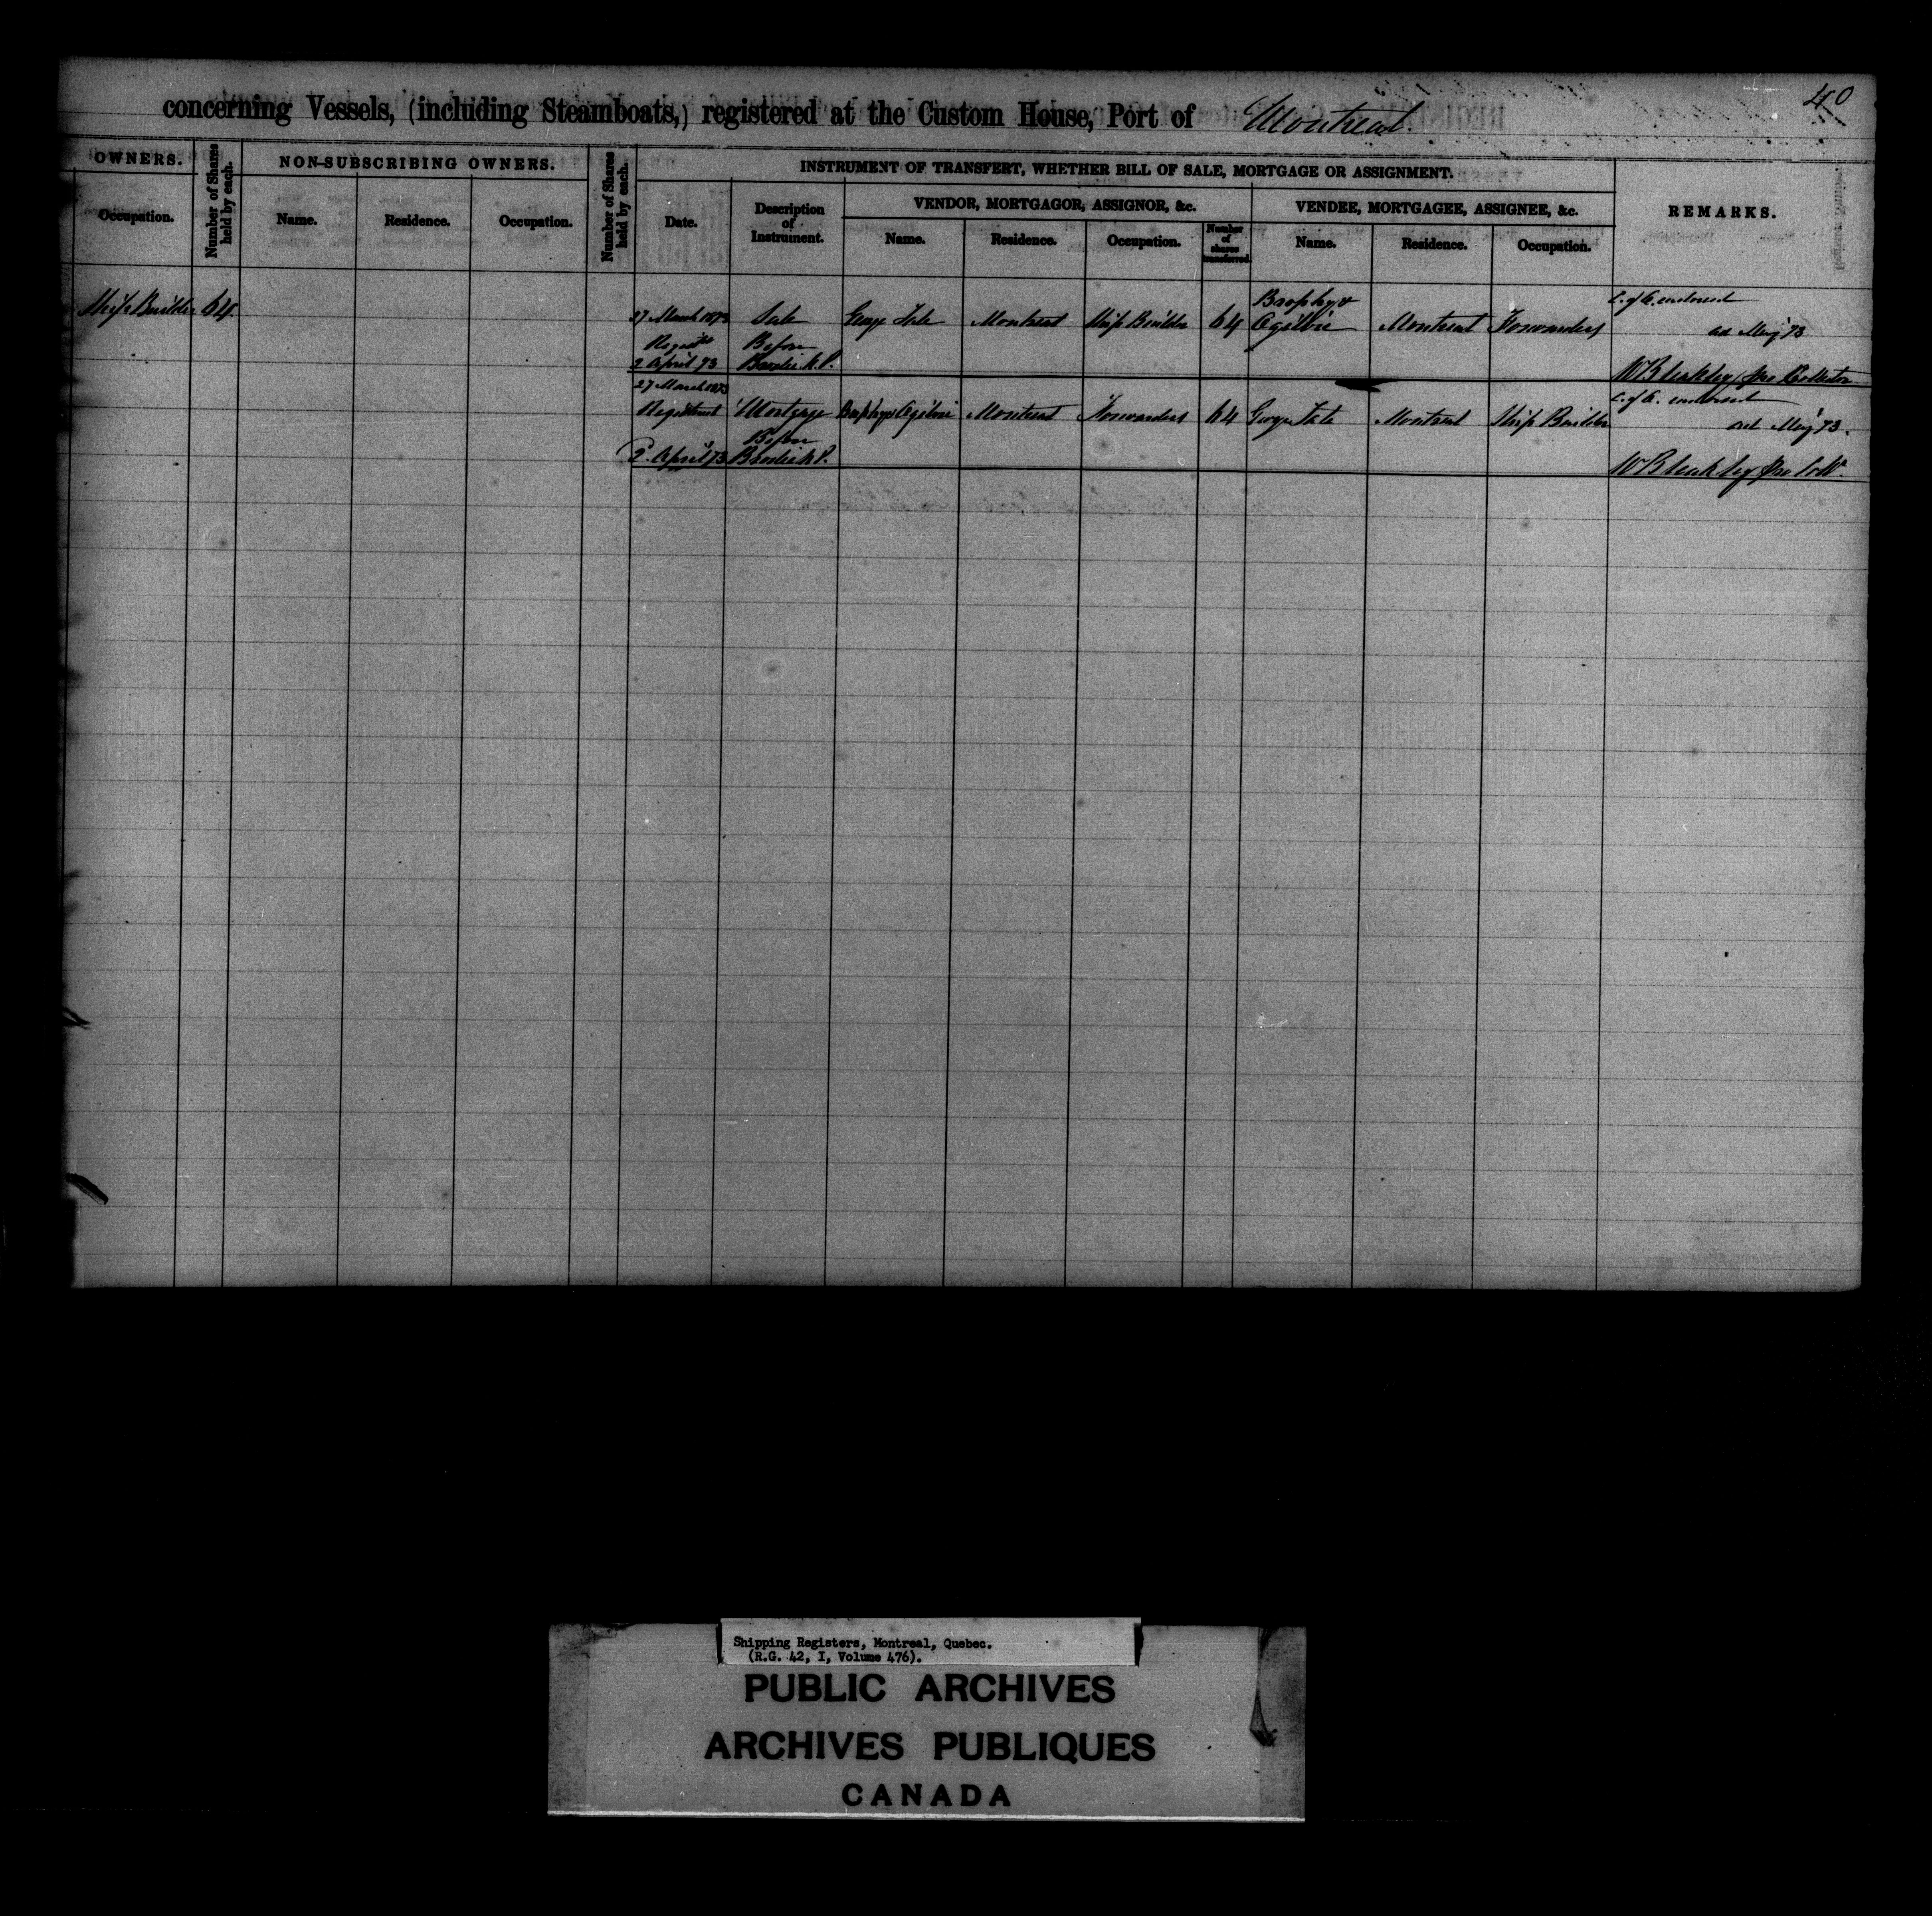 40
concerning Vessels, (including Steamboats,) registered at the Custom House, Port of Montreal.
OWNERS.
Occupation.
Number of Shares held by each.
NON-SUBSCRIBING OWNERS.
Name. Residence. Occupation.
Number of Shares held by each.
INSTRUMENT OF TRANSFERT, WHETHER BILL OF SALE, MORTGAGE OR ASSIGNMENT.
Date.
Description
of
Instrument.
VENDOR, MORTGAGOR, ASSIGNOR, &c.
Name. Residence. Occupation.
Number
of
shares
transferred.
VENDEE, MORTGAGEE, ASSIGNEE, &c.
Name. Residence. Occupation.
REMARKS.
Ship Builder 64
27 March 1873 Sale George Tate Montreal Ship Builder 64 Brophy & Ogilvie Montreal Forwarders C. of O. endorsed
May 73
Before
2 April 73 N.P.
W Bleakley pro Collector
27 March 1873
Registered Mortgage Brophy & Ogilvie Montreal Forwarders 64 George Tate Montreal Ship Builder C. of O. endorsed
May 73.
Before
2. April 73 N.P.
W Bleakley pro Collr
Shipping Registers, Montreal, Quebec.
(R.G. 42, I, Volume 476).
PUBLIC ARCHIVES
ARCHIVES PUBLIQUES
CANADA